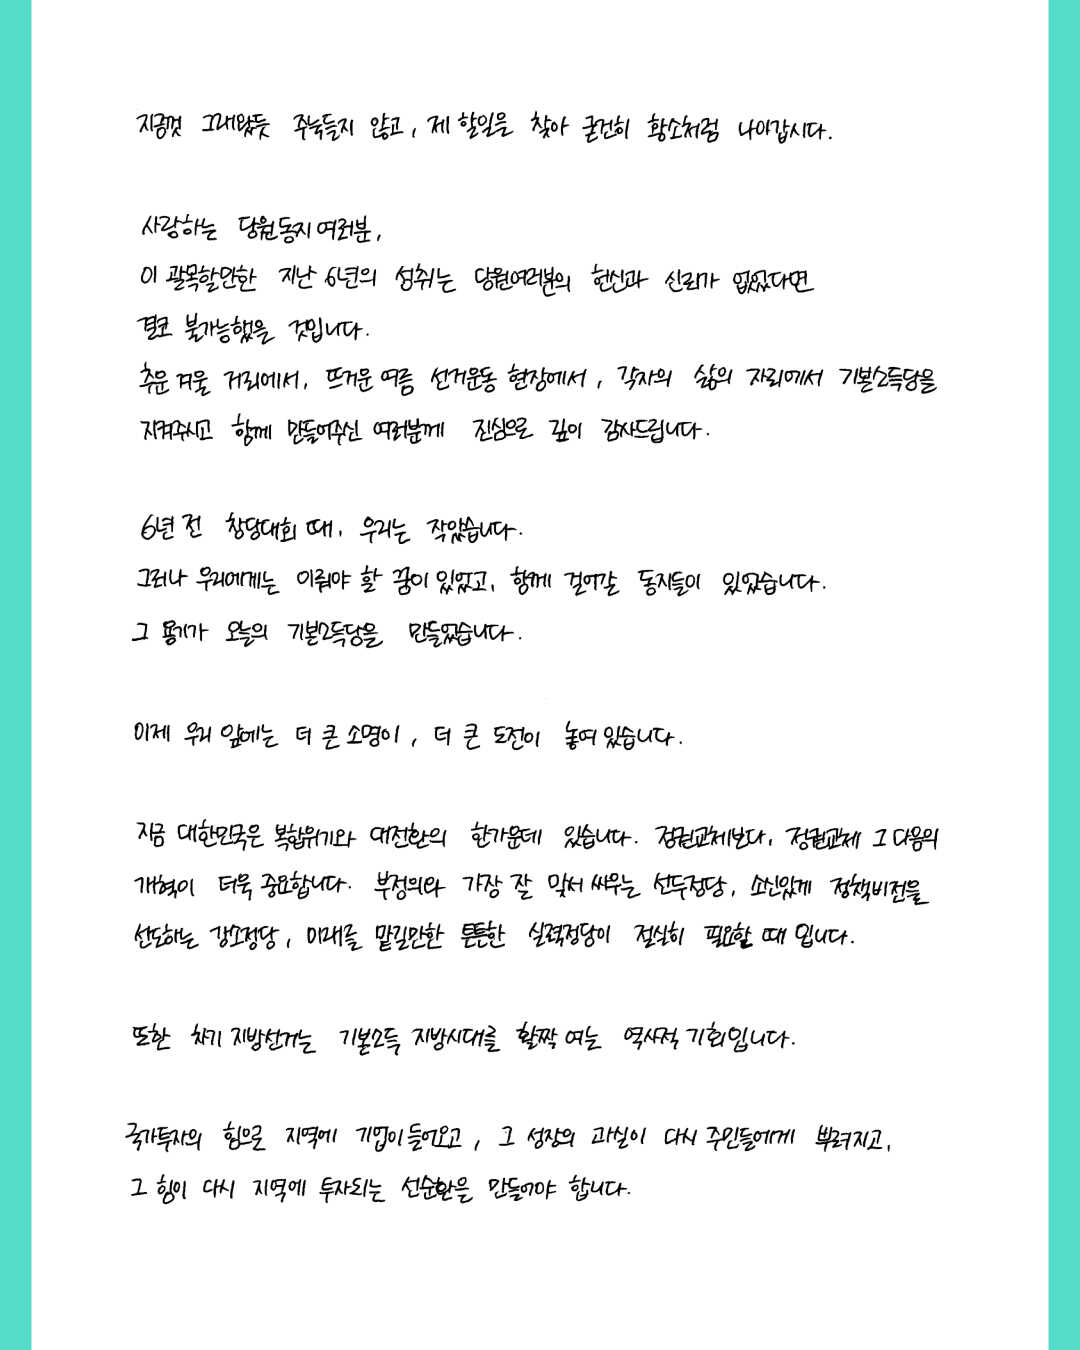 지금껏 그래왔듯 주눅들지 않고, 제 할일을 찾아 굳건히 황소처럼 나아갑시다.
사랑하는 당원동지 여러분,
이 괄목할만한 지난 6년의 성취는 당원여러분의 헌신과 신뢰가 없었다면
결코 불가능했을 것입니다.
추운 겨울 거리에서, 뜨거운 여름 선거운동 현장에서, 각자의 삶의 자리에서 기본소득당을
지켜주시고 함께 만들어주신 여러분께 진심으로 깊이 감사드립니다.
6년 전 창당대회 때, 우리는 작았습니다.
그러나 우리에게는 이뤄야 할 꿈이 있었고, 함께 걸어갈 동지들이 있었습니다.
그 용기가 오늘의 기본소득당을 만들었습니다.
이제 우리 앞에는 더 큰 소명이, 더 큰 도전이 놓여 있습니다.
지금 대한민국은 복합위기와 대전환의 한가운데 있습니다. 정권교체보다, 정권교체 그 다음의
개혁이 더욱 중요합니다. 부정의와 가장 잘 맞서 싸우는 선두정당, 소신있게 정책비전을
선도하는 강소정당, 미래를 맡길만한 튼튼한 실력정당이 절실히 필요할 때 입니다.
또한 차기 지방선거는 기본소득 지방시대를 활짝 여는 역사적 기회입니다.
국가투자의 힘으로 지역에 기업이 들어오고, 그 성장의 과실이 다시 주민들에게 뿌려지고,
그 힘이 다시 지역에 투자되는 선순환을 만들어야 합니다.